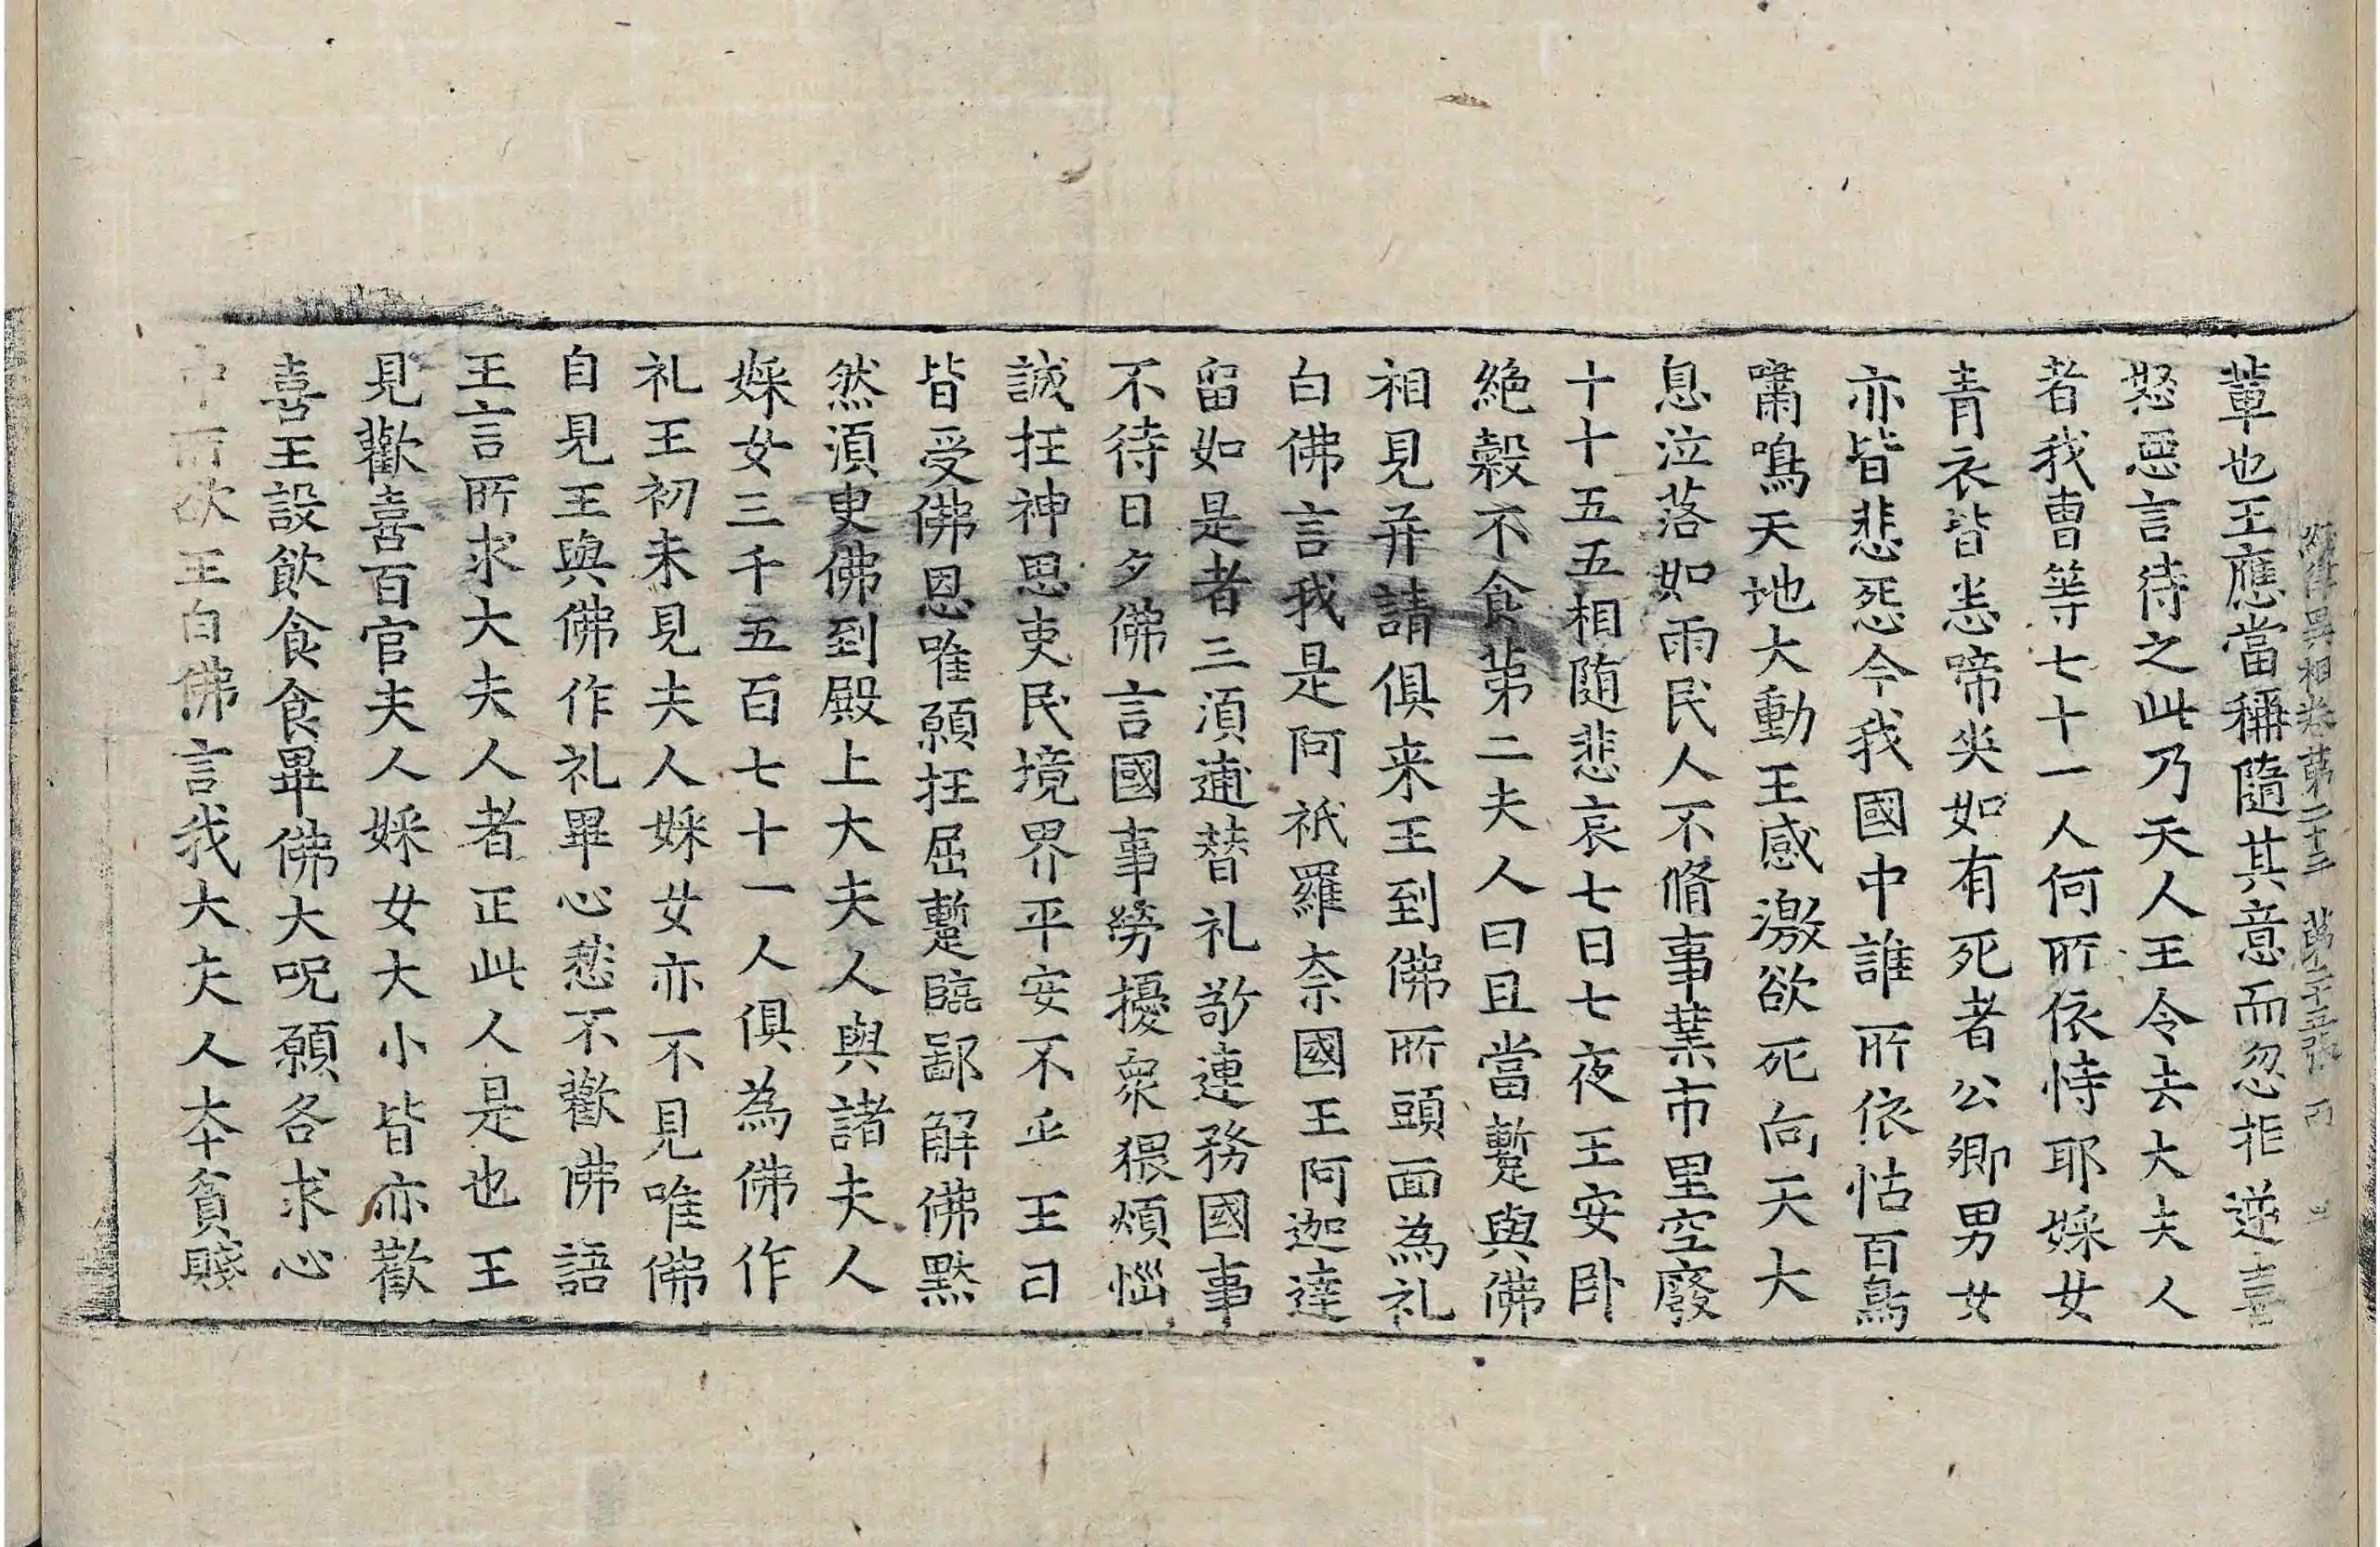 經律異相卷第二十三 第十五張 西
輩也王應當稱隨其意而忽拒逆喜
怒惡言待之此乃天人王令去大夫人
者我曹等七十一人何所依恃耶婇女
青衣皆恚啼哭如有死者公卿男女
亦皆悲怨今我國中誰所依怙百鳥
嘯鳴天地大動王感激欲死向天大
息泣落如雨民人不脩事業市里空廢
十十五五相随悲哀七日七夜王安卧
絶糓不食第二夫人曰且當蹔與佛
相見并請俱来王到佛所頭面為礼
白佛言我是阿祇羅奈國王阿迦達
留如是者三湏逋替礼敬連務國事
不待日夕佛言國事勞擾衆猥煩惱
誠抂神思吏民境界平安不乎王曰
皆受佛恩唯願抂屈蹔臨鄙解佛黙
然湏臾佛到殿上大夫人與諸夫人
婇女三千五百七十一人俱為佛作
礼王初未見夫人婇女亦不見唯佛
自見王與佛作礼畢心愁不歡佛語
王言所求大夫人者正此人是也王
見歡喜百官夫人婇女大小皆亦歡
喜王設飲食食畢佛大呪願各求心
中所欲王白佛言我大夫人本貧賤